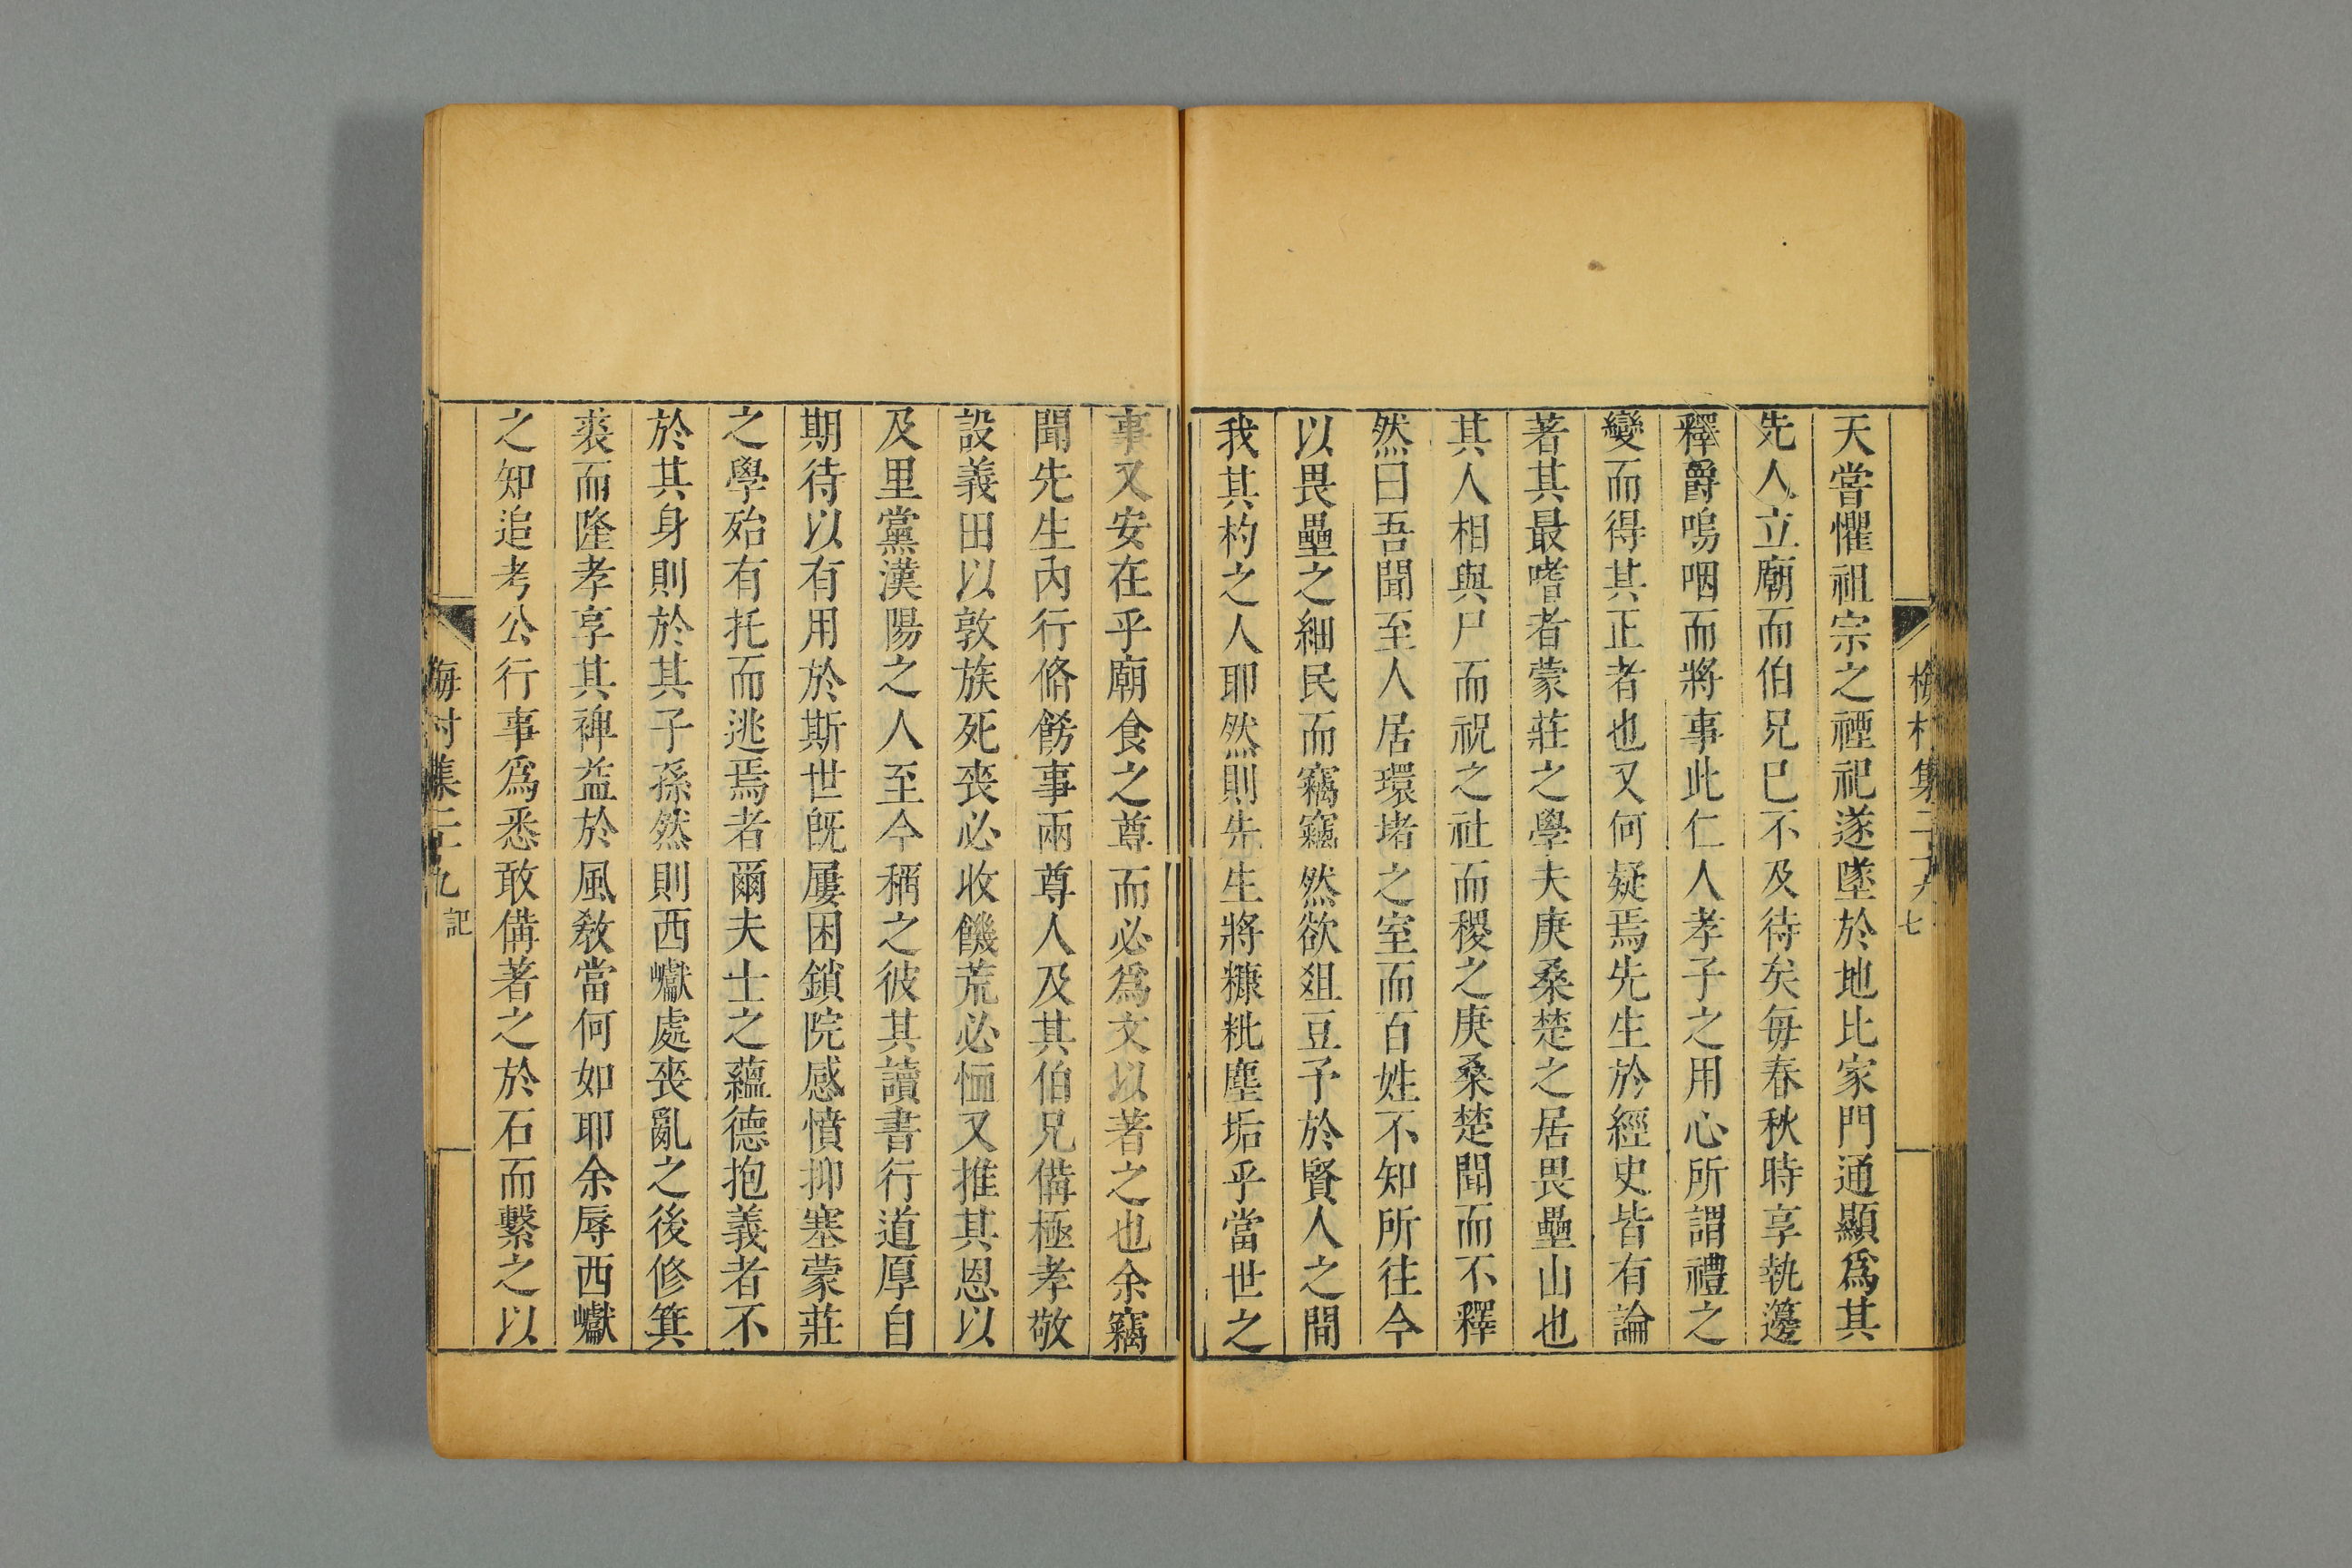 天嘗懼祖宗之禋祀遂墜於地比家門通顯爲其
先人立廟而伯兄已不及待矣每春秋時享執籩
釋爵嗚咽而將事此仁人孝子之用心所謂禮之
變而得其正者也又何疑焉先生於經史皆有論
著其最嗜者蒙莊之學夫庚桑楚之居畏壘山也
其人相與尸而祝之社而稷之庚桑楚聞而不釋
然曰吾聞至人居環堵之室而百姓不知所往今
以畏壘之細民而竊竊然欲俎豆予於賢人之間
我其杓之人耶然則先生將糠粃塵垢乎當世之
事又安在乎廟食之尊而必爲文以著之也余竊
聞先生內行脩飭事兩尊人及其伯兄備極孝敬
設義田以敦族死喪必收饑荒必恤又推其恩以
及里黨漢陽之人至今稱之彼其讀書行道厚自
期待以有用於斯世旣屢困鎖院感憤抑塞蒙莊
之學殆有托而逃焉者爾夫士之蘊德抱義者不
於其身則於其子孫然則西巘處喪亂之後修箕
裘而隆孝享其裨益於風敎當何如耶余辱西巘
之知追考公行事爲悉敢備著之於石而繫之以
梅村集二十九
記